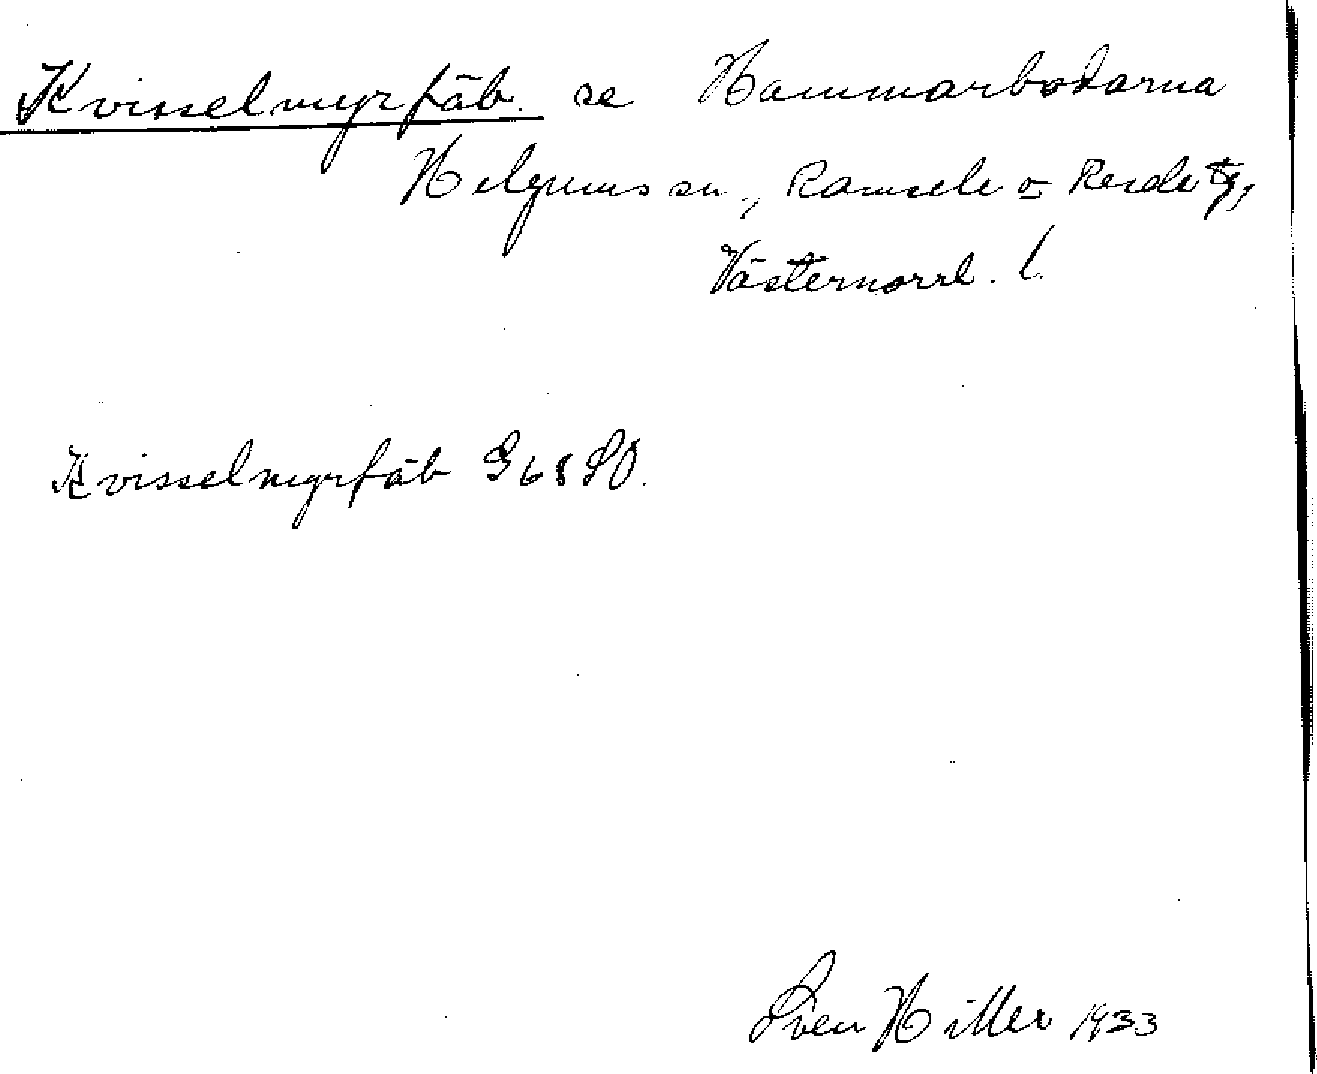 Kvisselmyrfäb. se Hammarbodarna
Helgums sn., Ramsele o Resele tg,
Västernorrl. l.
Kvisselmyrfäb G68 SO.
Sven Hiller 1933